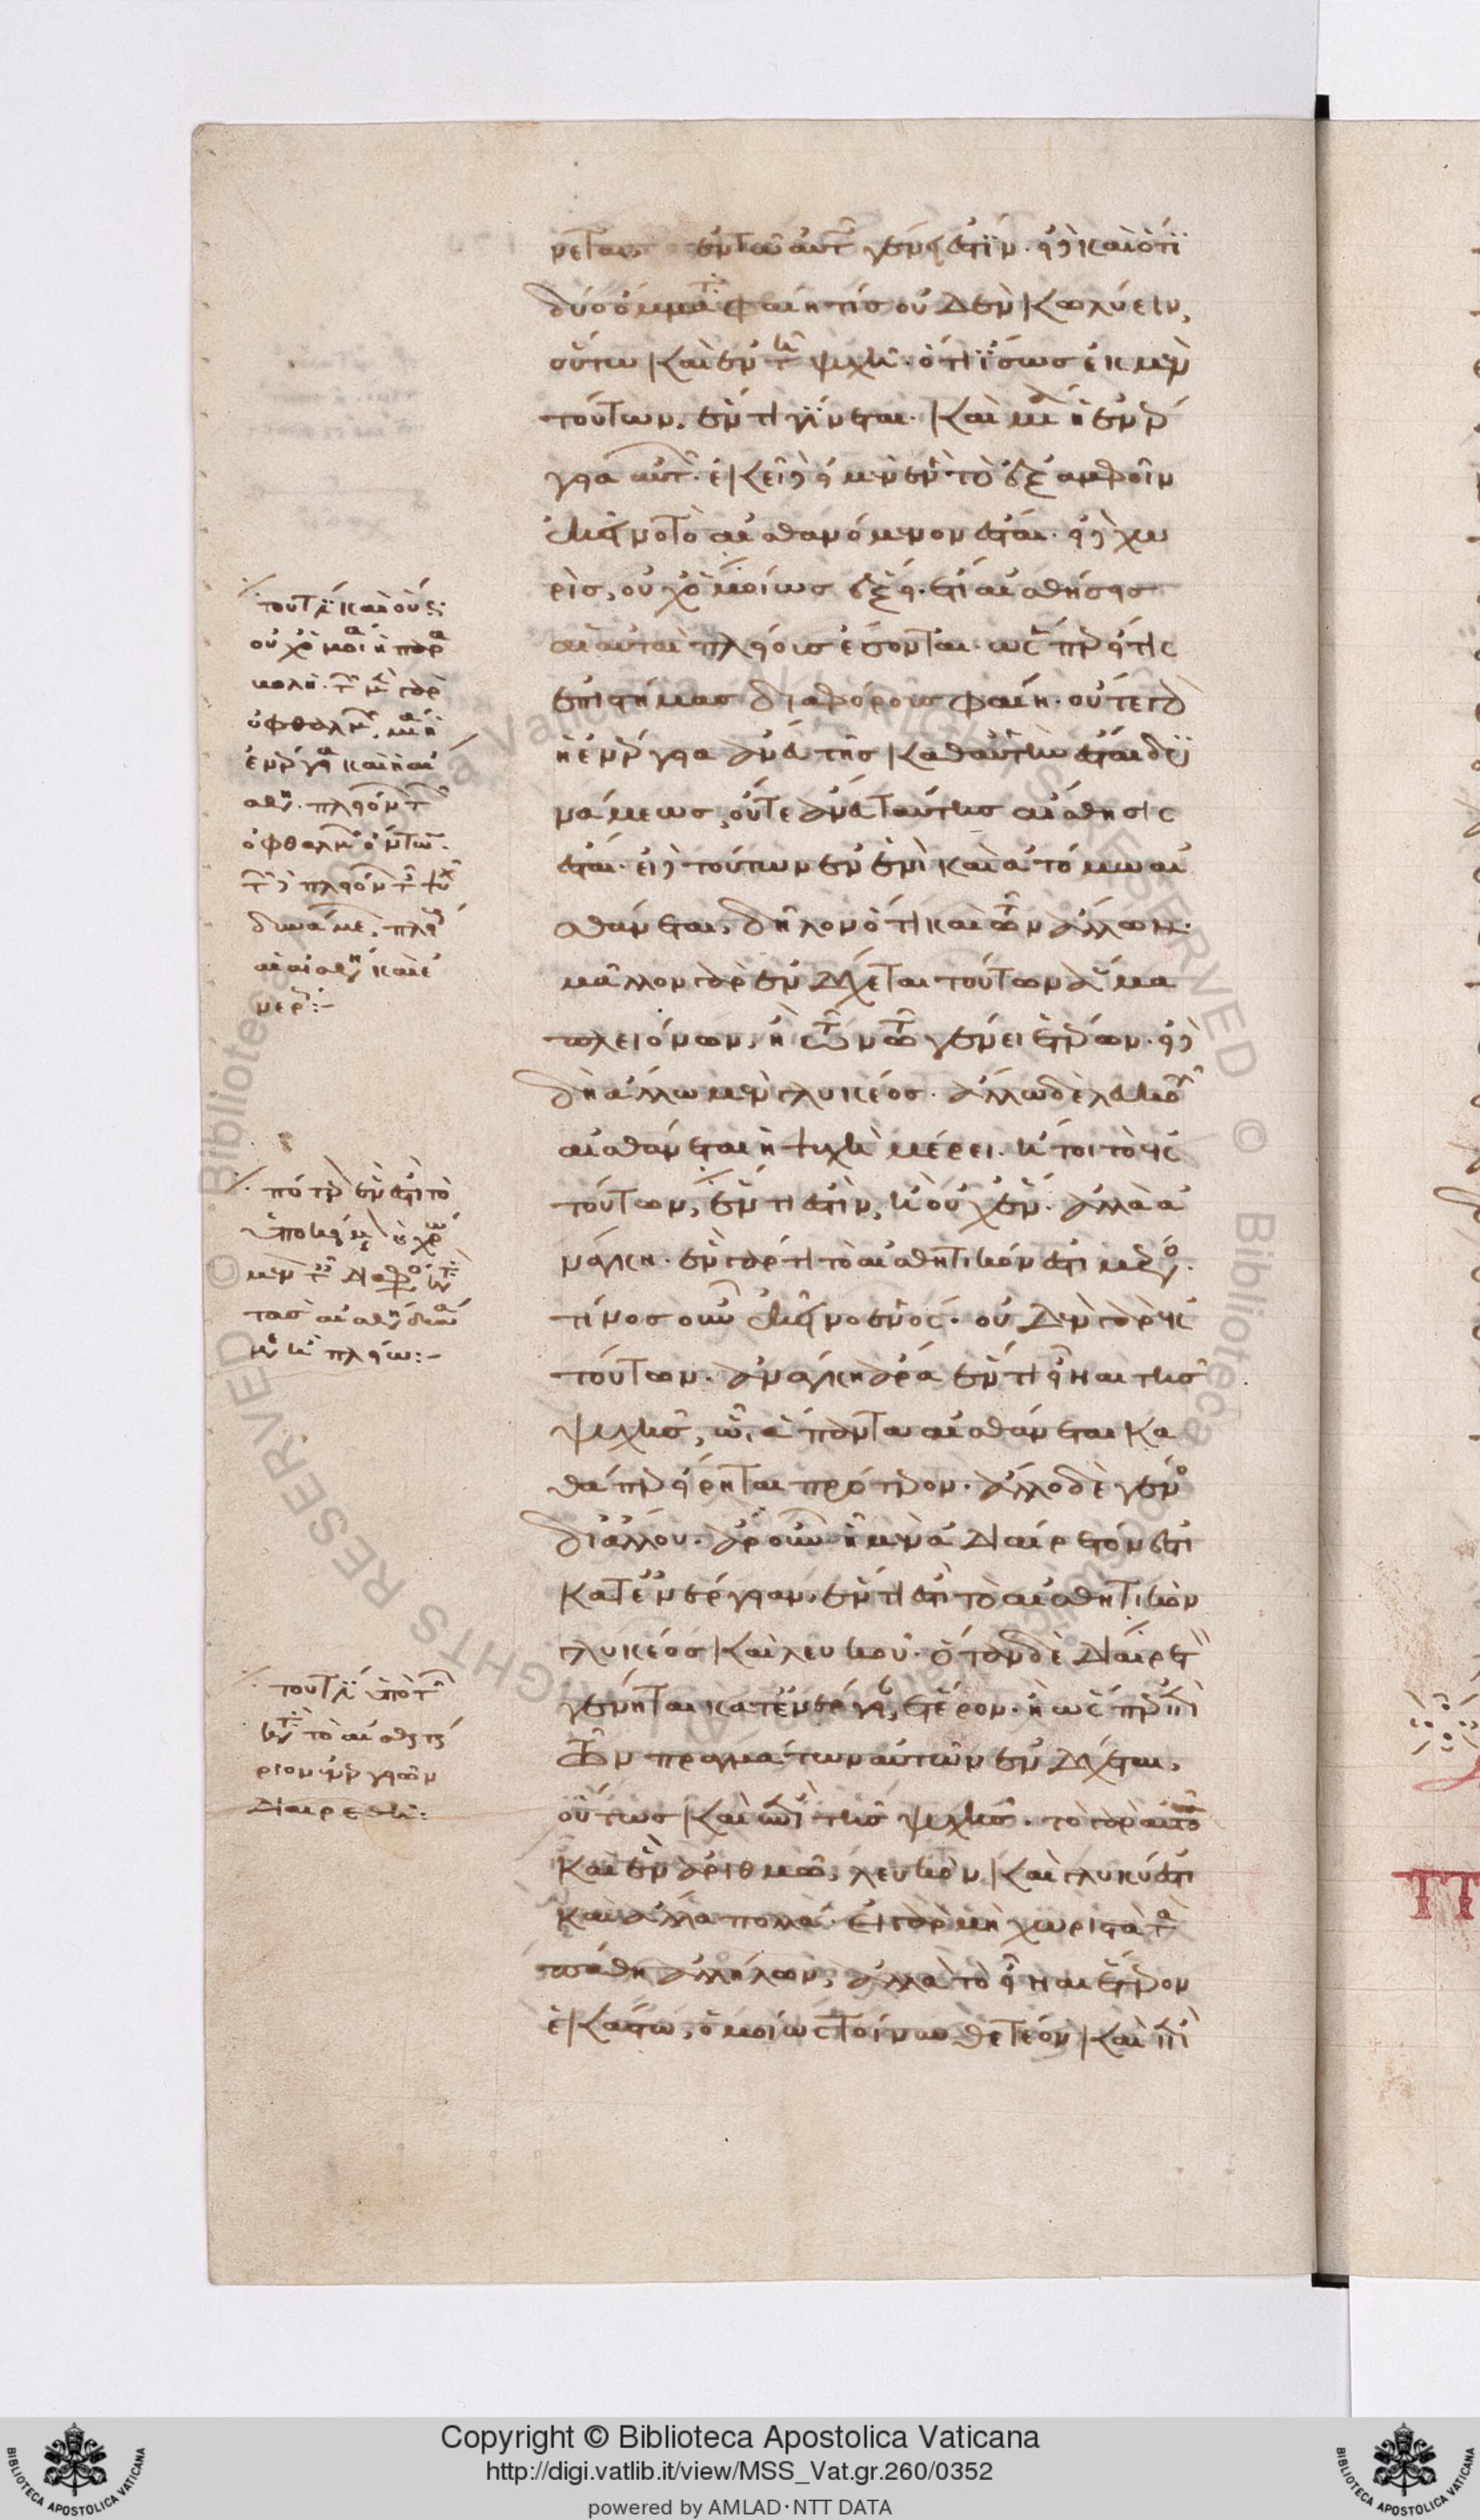 νεται, ἐν τῷ αὐτῷ γένει ἐστίν. εἰ δὲ καὶ ὅτι
δύο ὄμματα φαίη τις οὐδὲν κωλύειν,
οὕτω καὶ ἐν τῇ ψυχῇ. ὅτι ἴσως ἐκ μὲν
τούτων, ἕν τι γίνεται. καὶ μία ἡ ἐνέρ
γεια αὐτῶν. ἐκεῖ δὲ εἰ μὲν ἓν τὸ ἐξ ἀμφοῖν
ἐκεῖνο τὸ αἰσθανόμενον ἔσται. εἰ δὲ χω
ρὶς, οὐχ ὁμοίως ἕξει. ἔτι αἰσθήσεις
αἱ αὐταὶ πλείους ἔσονται. ὥσπερ εἴ τις
ἐπιστήμας διαφόρους φαίη. οὔτε γὰρ
ἡ ἐνέργεια ἄνευ τῆς καθαὑτὴν ἔσται δυ
νάμεως, οὔτε ἄνευ ταύτης αἴσθησις
ἔσται. εἰ δὲ τούτων ἐν ἑνὶ καὶ ἀτόμω αἰ
σθάνεται, δῆλον ὅτι καὶ τῶν ἄλλων.
μᾶλλον γὰρ ἐνδέχεται τούτων ἅμα
πλειόνων, ἢ τῶν τῷ γένει ἑτέρων. εἰ δὲ
δὴ ἄλλω μὲν γλυκέος. ἄλλω δὲ λευκοῦ
αἰσθάνεται ἡ ψυχὴ μέρει. ἤτοι τὸ ἐκ
τούτων, ἕν τι ἐστὶν, ἢ οὐχ ἕν. ἀλλὰ ἀ
νάγκη. ἓν γάρ τι τὸ αἰσθητικόν ἐστι μέρος.
τίνος οὖν ἐκεῖνο ἑνός. οὐδὲν γὰρ ἐκ
τούτων. ἀνάγκη ἄρα ἕν τι εἶναι τῆς
ψυχῆς, ὧ, ἅπαντα αἰσθάνεται κα
θάπερ εἴρηται πρότερον. ἄλλο δὲ γένος
διἄλλου. ἆρ οὖν ἧ μὲν ἀδιαίρετον ἐστὶ
κατἐνέργειαν, ἕν τι ἐστὶ τὸ αἰσθητικὸν
γλυκέος καὶ λευκοῦ. ὅταν δὲ διαιρετὸν
γένηται κατἐνέργειαν, ἕτερον. ἢ ὥσπερ ἐπὶ
τῶν πραγμάτων αὐτῶν ἐνδέχεται,
οὕτως καὶ ἐπὶ τῆς ψυχῆς. τὸ γὰρ αὐτὸ
καὶ ἓν ἀριθμῷ, λευκὸν καὶ γλυκύ ἐστι
καὶ ἄλλα πολλά. εἰ γὰρ μὴ χωριστὰ τὰ
πάθη ἀλλήλων, ἀλλὰ τὸ εἶναι ἕτερον
ἑκάστω, ὁμοίως τοίνυν θετέον καὶ ἐπὶ
τουτέστι καὶ οὕτως
οὐχ ὁμοία ἡ παρα
βολή. τῶν μὲν γὰρ
ὀφθαλμῶν, μία ἡ
ἐνέργεια καὶ ἡ αἴ
σθησις. πλειόνων τῶν
ὀφθαλμῶν ὄντων.
τῶν δὲ πλειόνων τῶν ψυχῆς
δυνάμεων, πλείους
αἱ αἰσθήσεις καὶ ἐ
νερ:-
πότερον ἕν ἐστι τὸ
τουτέστι ὑπὸ τῶν
κατὰ τὸ αἰσθητή
ριον ἐνεργειῶν
διαιρεθῇ:
Copyright © Biblioteca Apostolica Vaticana
http://digi.vatlib.it/view/MSS_Vat.gr.260/0352
powered by AMLAD·NTT DATA